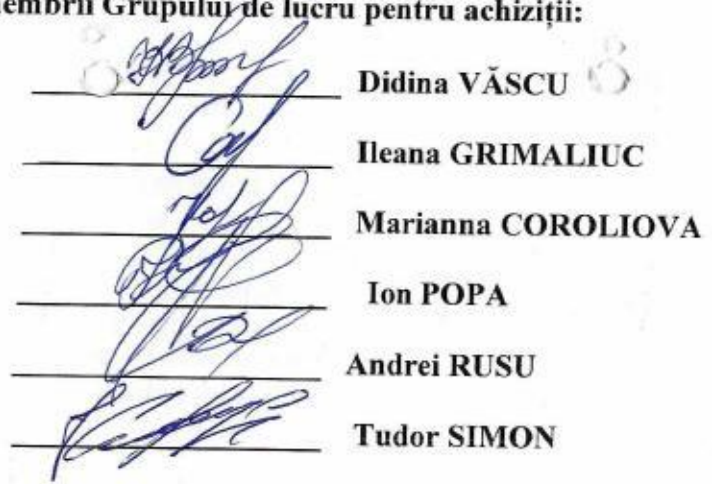 membrii Grupului de lucru pentru achiziții:
Didina VĂSCU
Ileana GRIMALIUC
Marianna COROLIOVA
Ion POPA
Andrei RUSU
Tudor SIMON